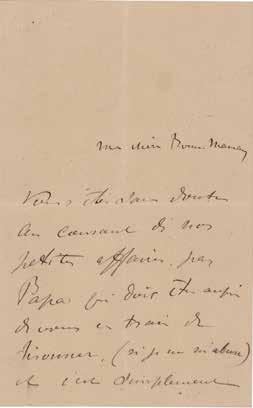 ma chère Bonne Maman
Vous êtes sans doute
au courant de nos
petites affaires par
Papa qui doit être auprès
de vous en train de
(si je ne m'abuse)
et c'est simplement